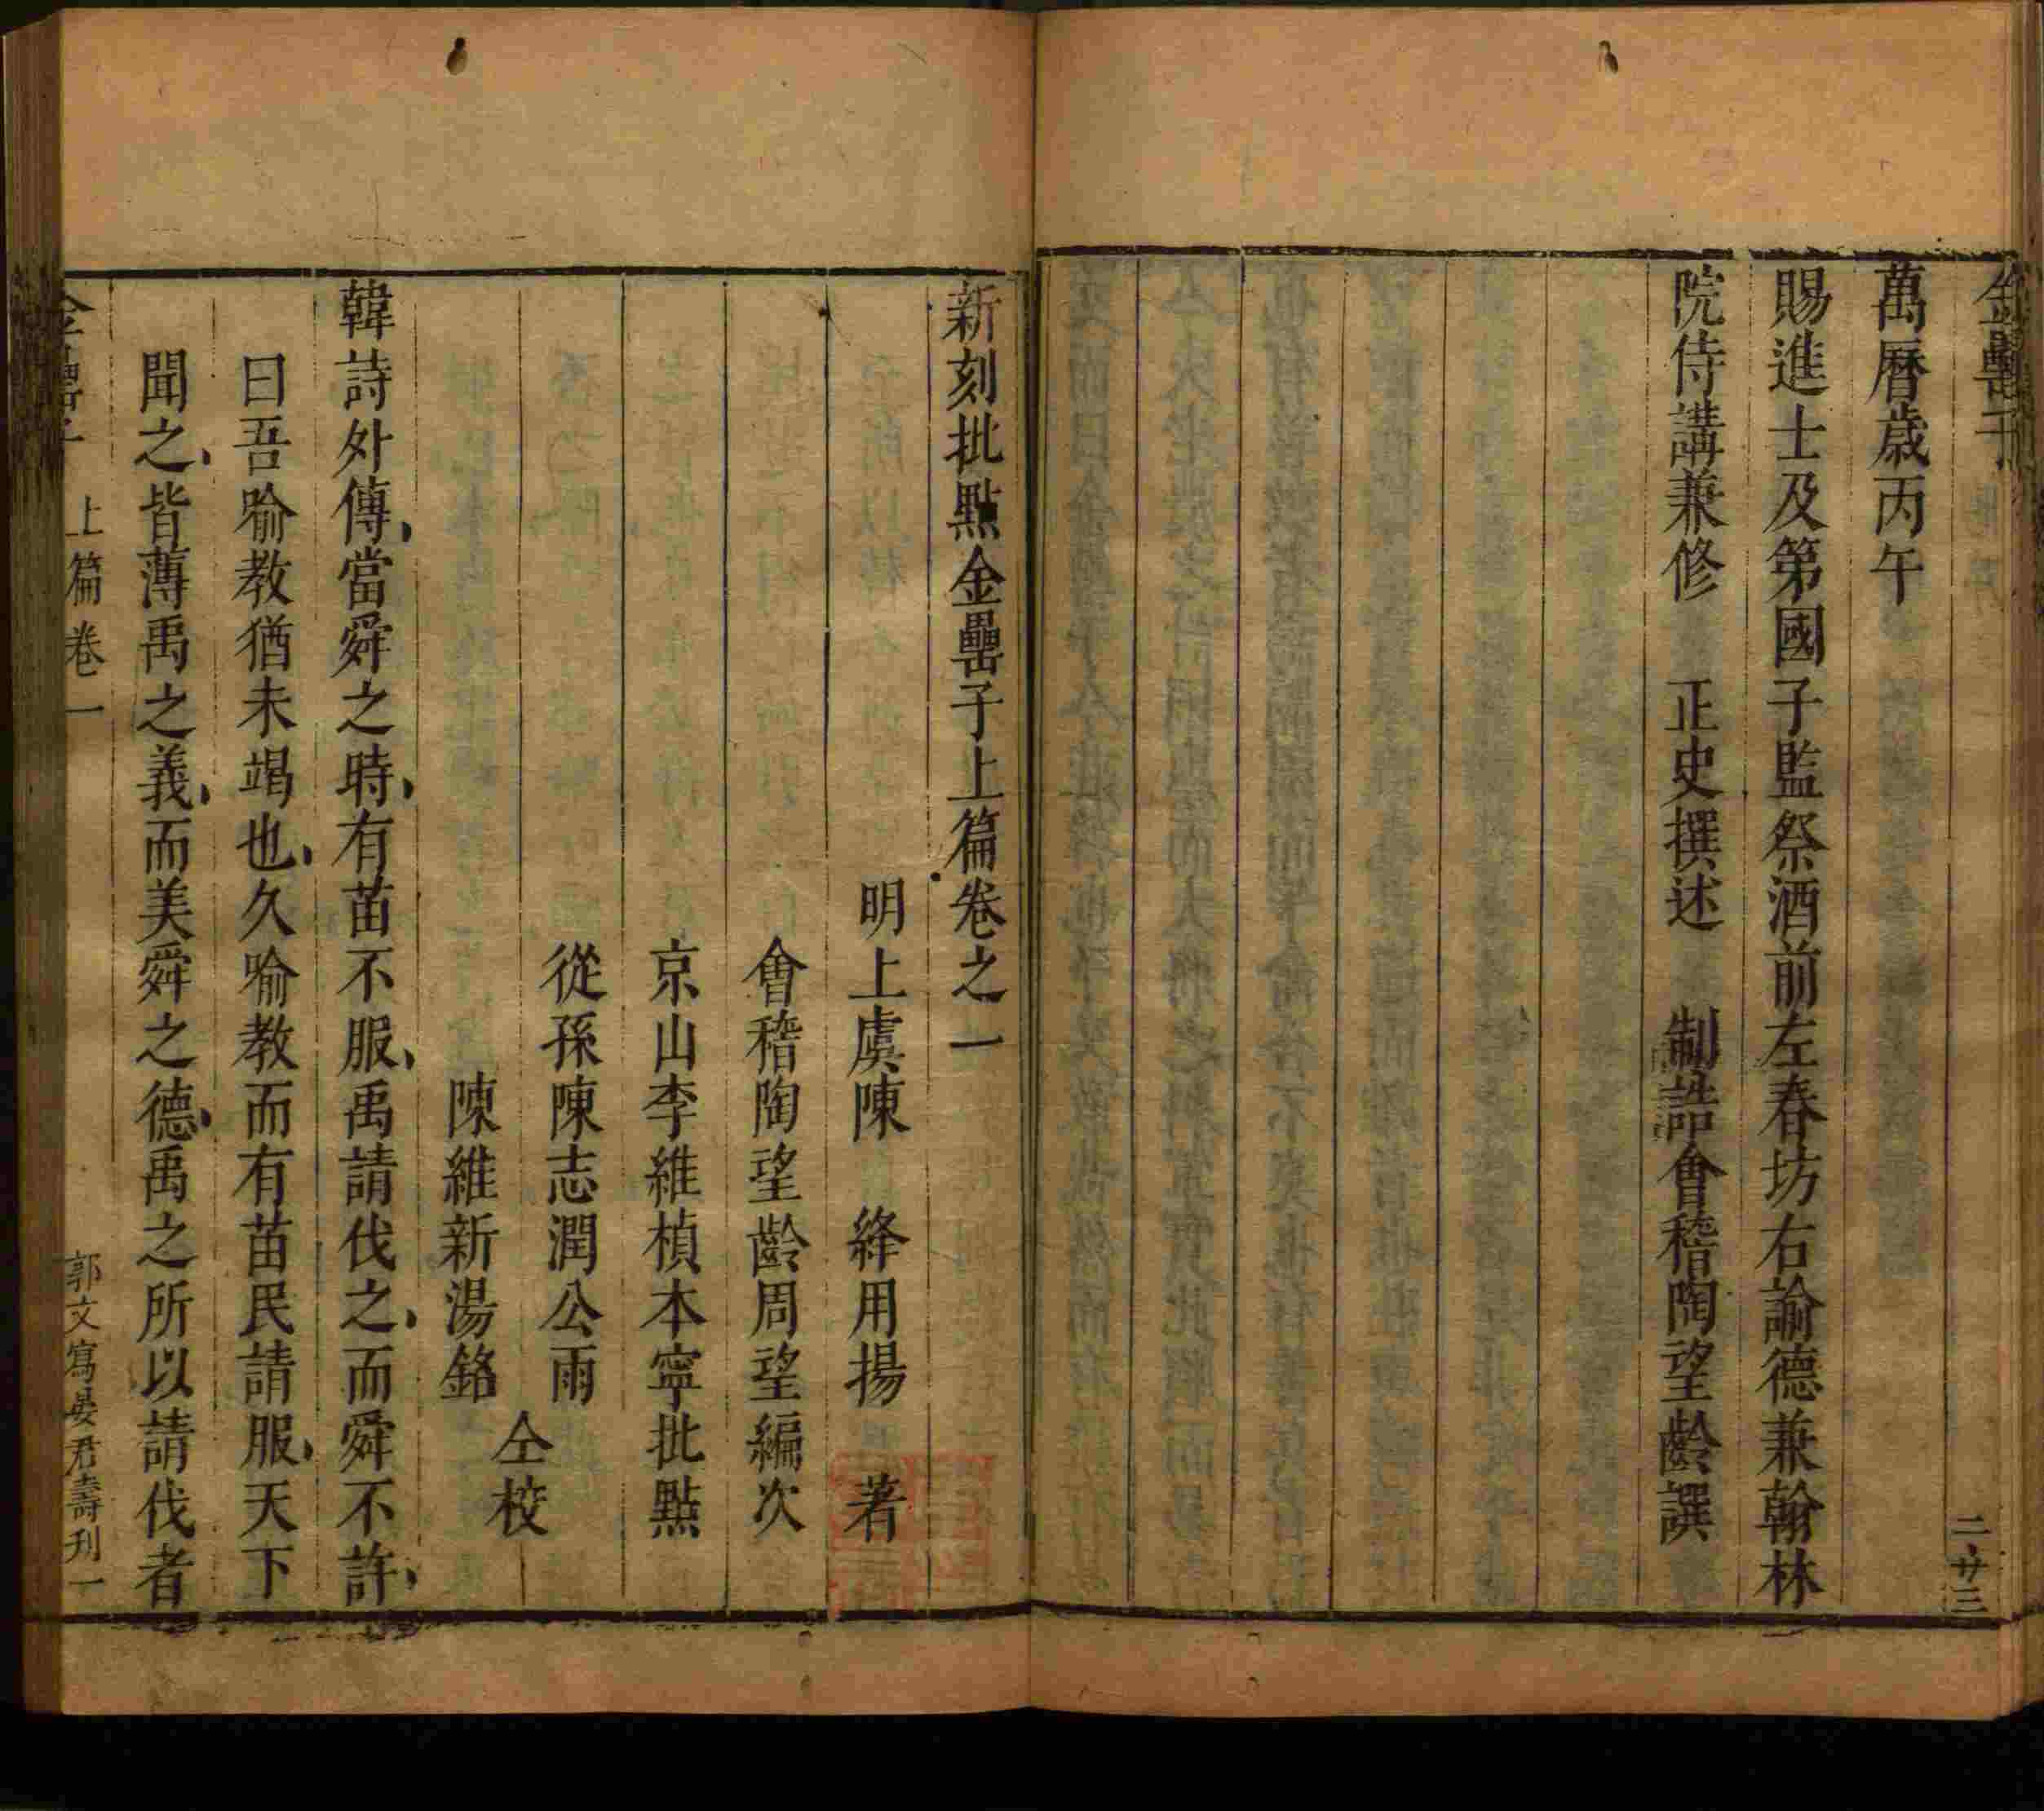 金罍子
二廿三
萬曆歲丙午
賜進士及第國子監祭酒前左春坊右諭德兼翰林
院侍講兼修　正史撰述　制誥會稽陶望齡譔
新刻批點金罍子上篇卷之一
明上虞陳　絳用揚　著
會稽陶望齡周望編次
京山李維楨本寧批點
從孫陳志潤公雨
陳維新湯銘
仝校
韓詩外傳當舜之時有苗不服禹請伐之而舜不許
曰吾喻教猶未竭也久喻教而有苗民請服天下
聞之皆薄禹之義而美舜之德禹之所以請伐者
金罍子　上篇卷一　郭文寫晏君壽刊一